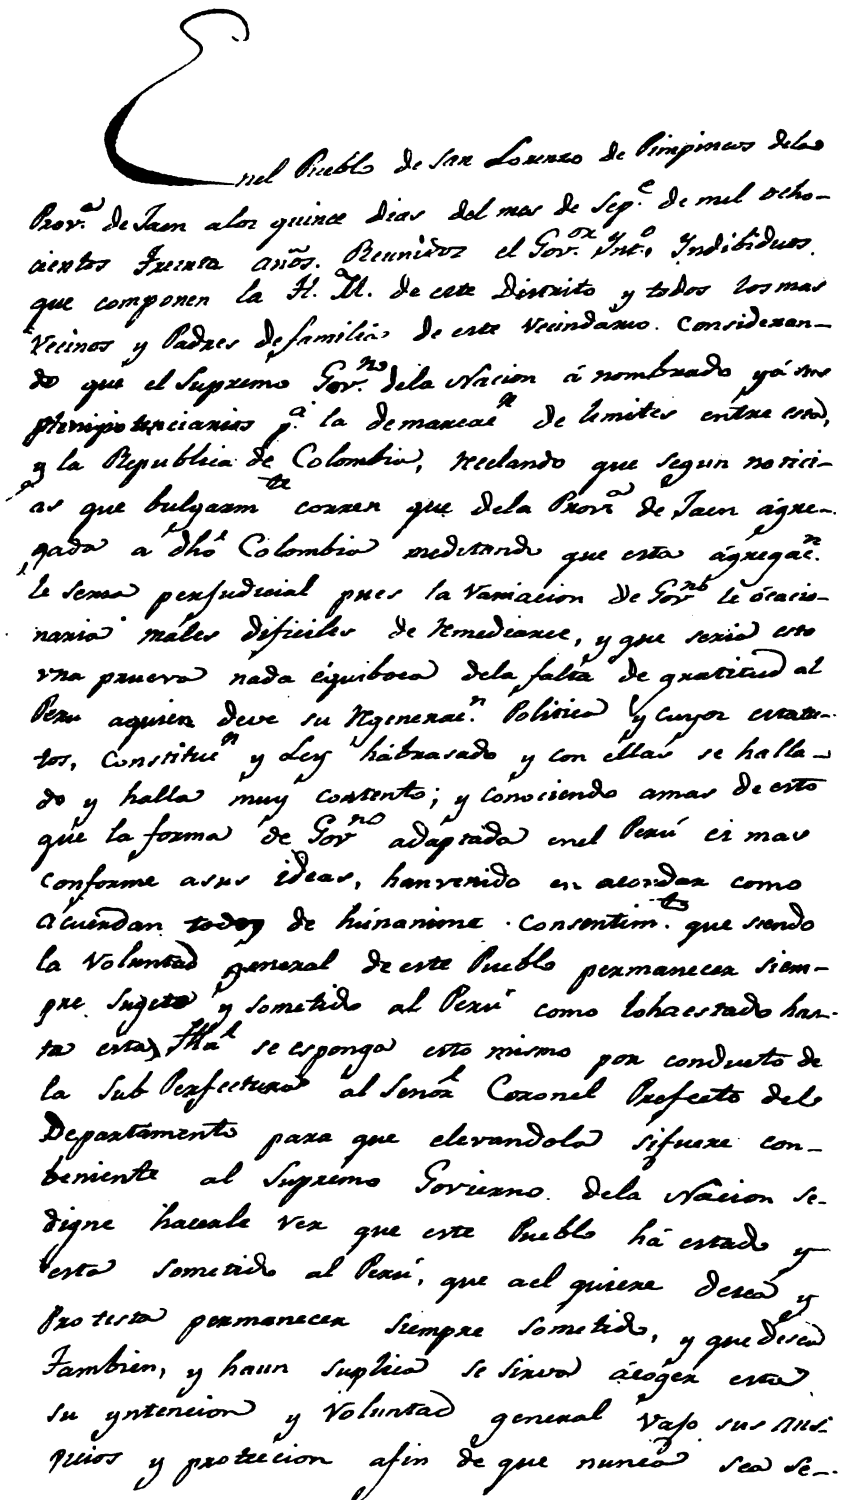 Enel Pueblo de San Lorenzo de Pimpincos dela
Prov.a de Jaen alos quince dias del mes de Sep.e de mil ocho-
cientos treinta años. Reunidos el Gov.or Int.o, Yndibiduos
que componen la H. M. de este Distrito y todos los mas
Vecinos y Padres defamilia de este Vecindario. Consideran-
do que el Supremo Gov.no dela Nacion á nombrado yá sus
plenipotenciarios p.a la demarcac.n de lemites entre esta,
y la Republica de Colombia, reclando que segun notici-
as que bulgarm.te corren que dela Prov.a de Jaen ágre-
gada a dhá Colombia meditando que esta ágregac.n
le seria perjudicial pues la Variacion de Gov.no le ócacio-
naria máles dificiles de remediarce, y que seria esto
vna prueva nada équiboca dela falta de gratitud al
Peru aquien deve su regenerac.n Politica y cuyos estatu-
tos, Constituc.n y Ley hábrasado y con ellas se halla-
do y halla muy contento; y conociendo amas de esto
que la forma de Gov.no adáptada enel Perú es mas
conforme asus ideas, hanvenido en acordar como
ácuerdan todos de húnanime Consentim.to que siendo
la Voluntad general de este Pueblo permanecer siem-
pre sugeto y sometido al Perú como lohaestado has-
ta esta, se esponga esto mismo por conducto de
la Sub Perfectura al Señor Coronel Prefecto del
Departamento para que elevandola sifuere con-
beniente al Supremo Govierno dela Nacion se-
digne hacerle ver que este Pueblo há estado y
esta sometido al Perú, que ael quiere deseá y
Protesta permanecer siempre sometido, y que desea
Tambien, y haun suplica se sirva ácoger esta
su yntencion y Voluntad general vajo sus aus-
picios y protecion afin de que nunca sea se-